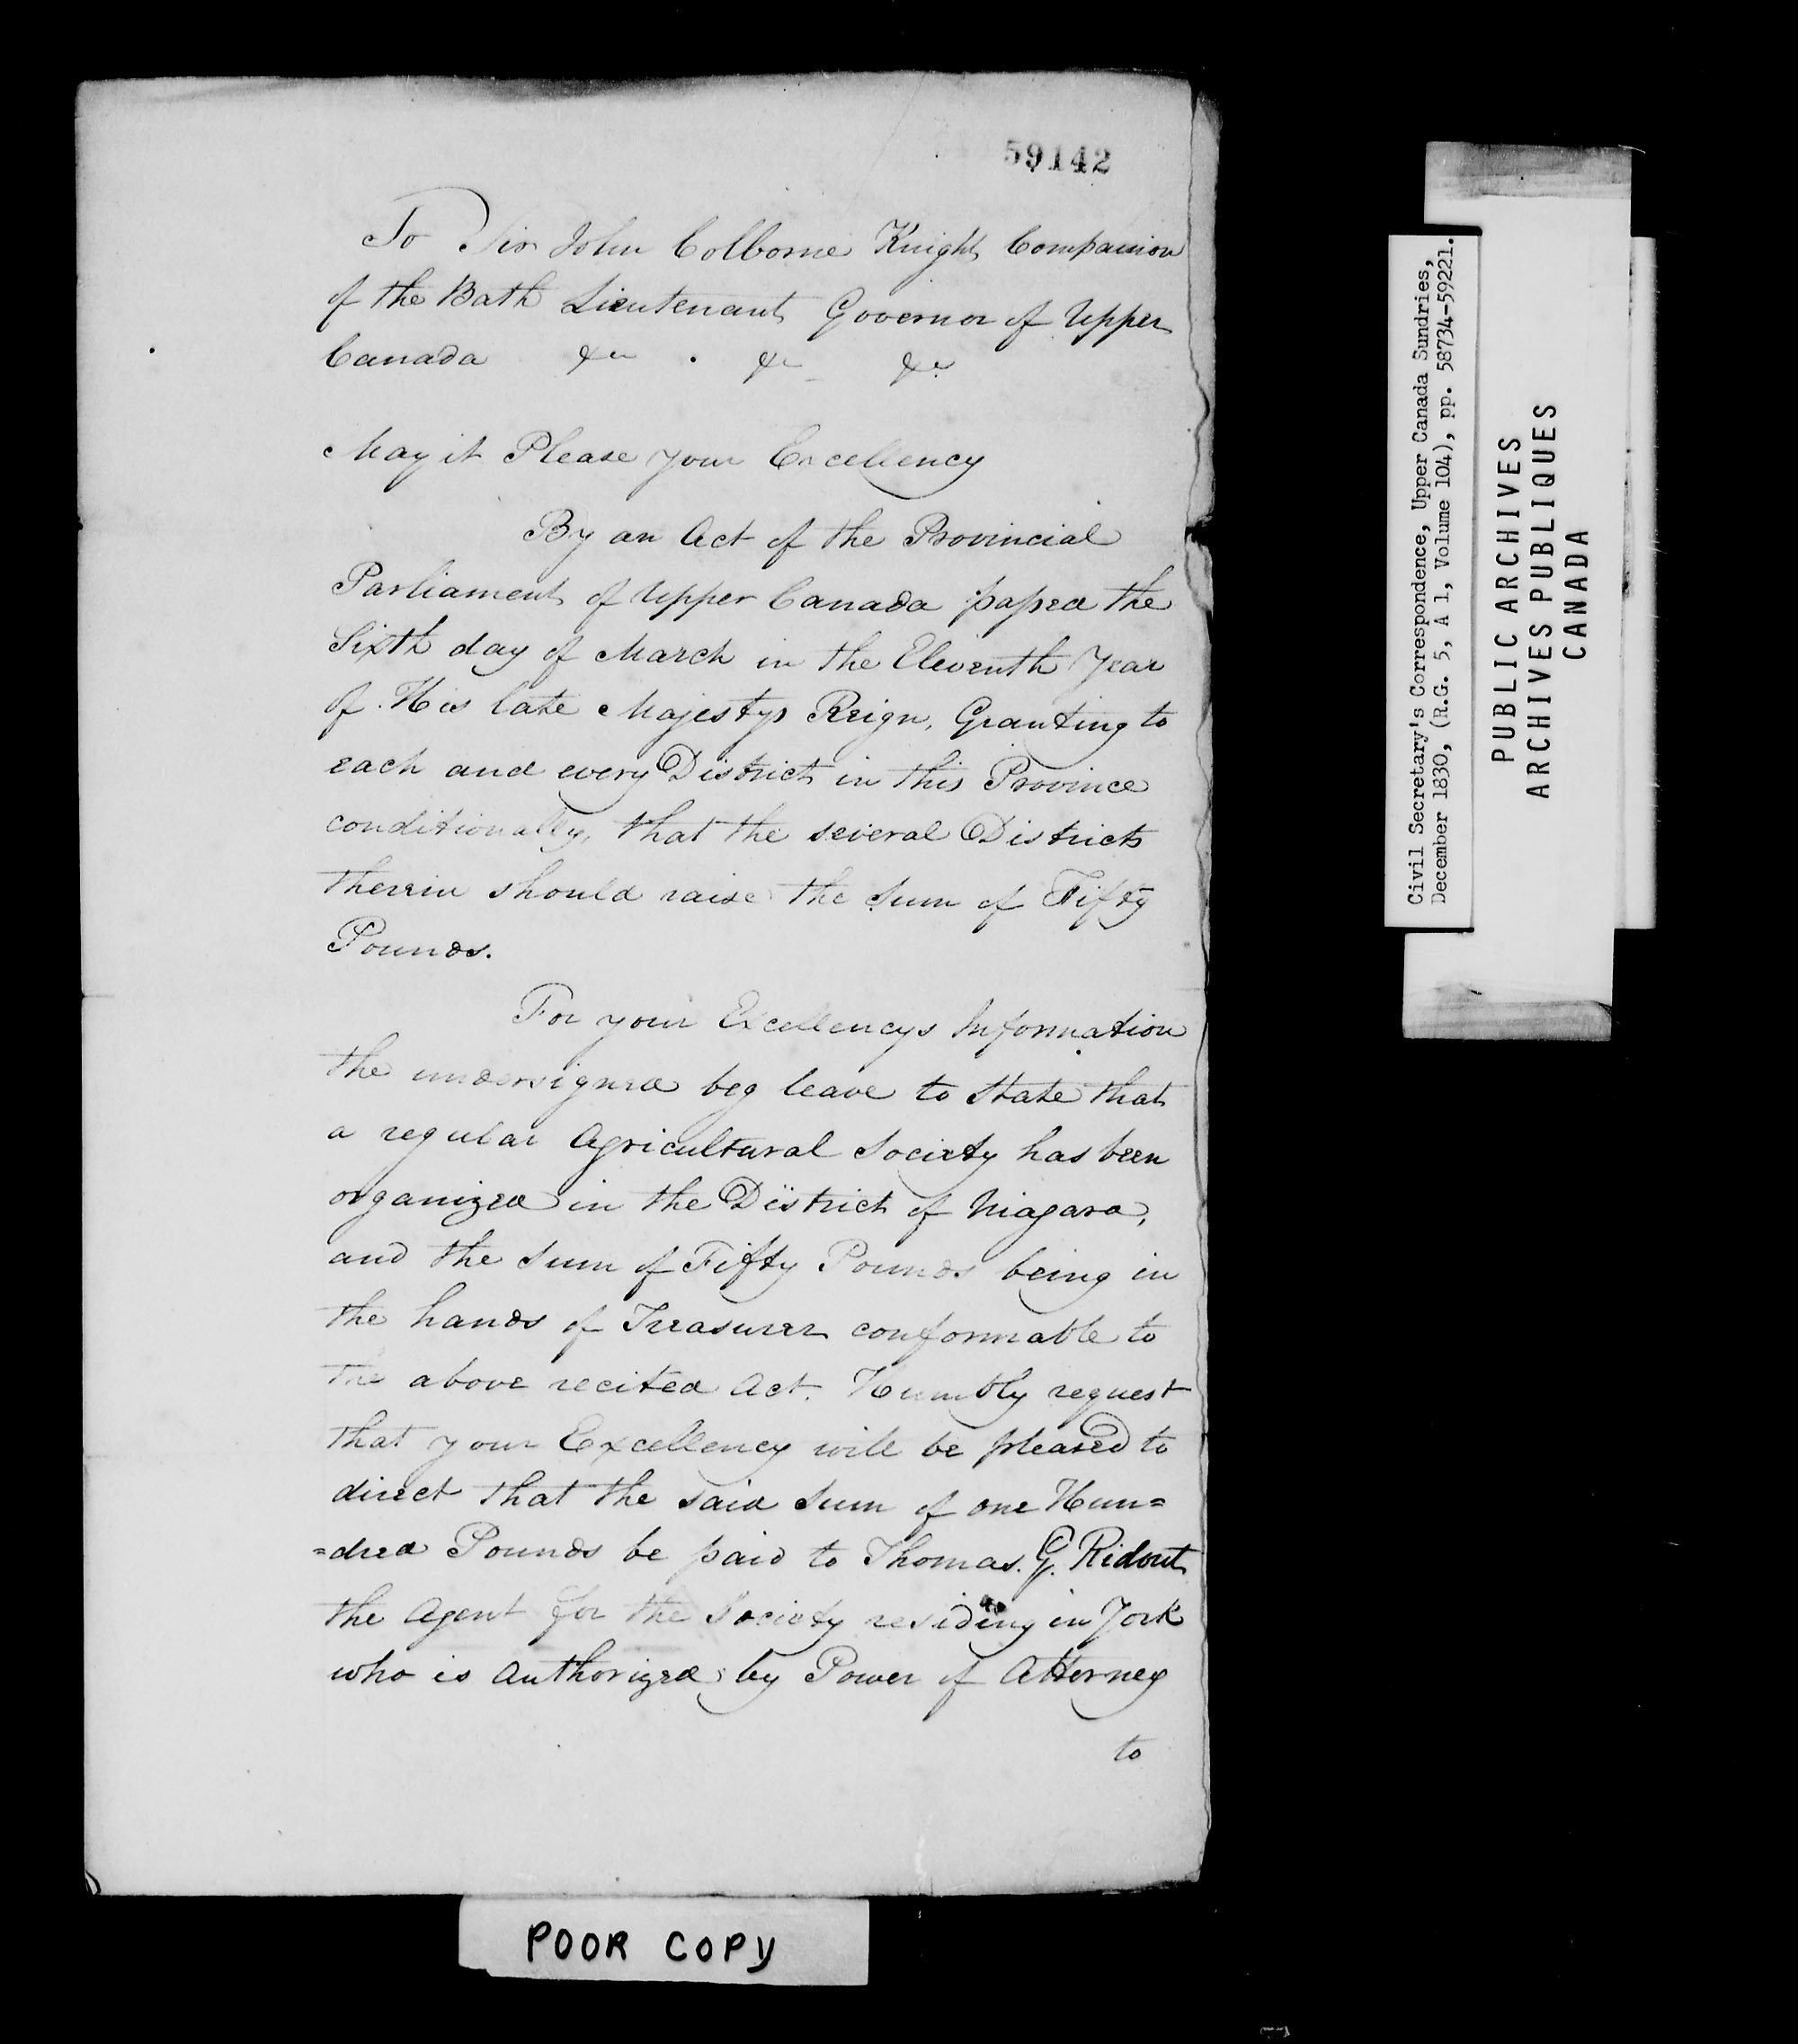 59142
To Sir John Colborne Knight Companion
of the Bath Lieutenant Governor of Upper
Canada &c . &c &c
May it Please your Excellency
By an Act of the Provincial
Parliament of Upper Canada passed the
Sixth day of March in the Eleventh Year
of His late Majestys Reign, Granting to
each and every District in this Province
conditionally, that the several Districts
therein should raise the Sum of Fifty
Pounds.
For your Excellencys Information
the undersigned beg leave to State that
a regular Agricultural Society has been
organized in the District of Niagara,
and the Sum of Fifty Pounds being in
the hands of Treasurer conformable to
the above recited Act. Humbly request
that your Excellency will be pleased to
direct that the said Sum of one Hun=
=dred Pounds be paid to Thomas. G. Ridout
the Agent for the Society residing in York
who is Authorized by Power of Attorney
to
POOR COPY
Civil Secretary's Correspondence, Upper Canada Sundries,
December 1830, (R.G. 5, A 1, Volume 104), pp. 58734-59221.
PUBLIC ARCHIVES
ARCHIVES PUBLIQUES
CANADA